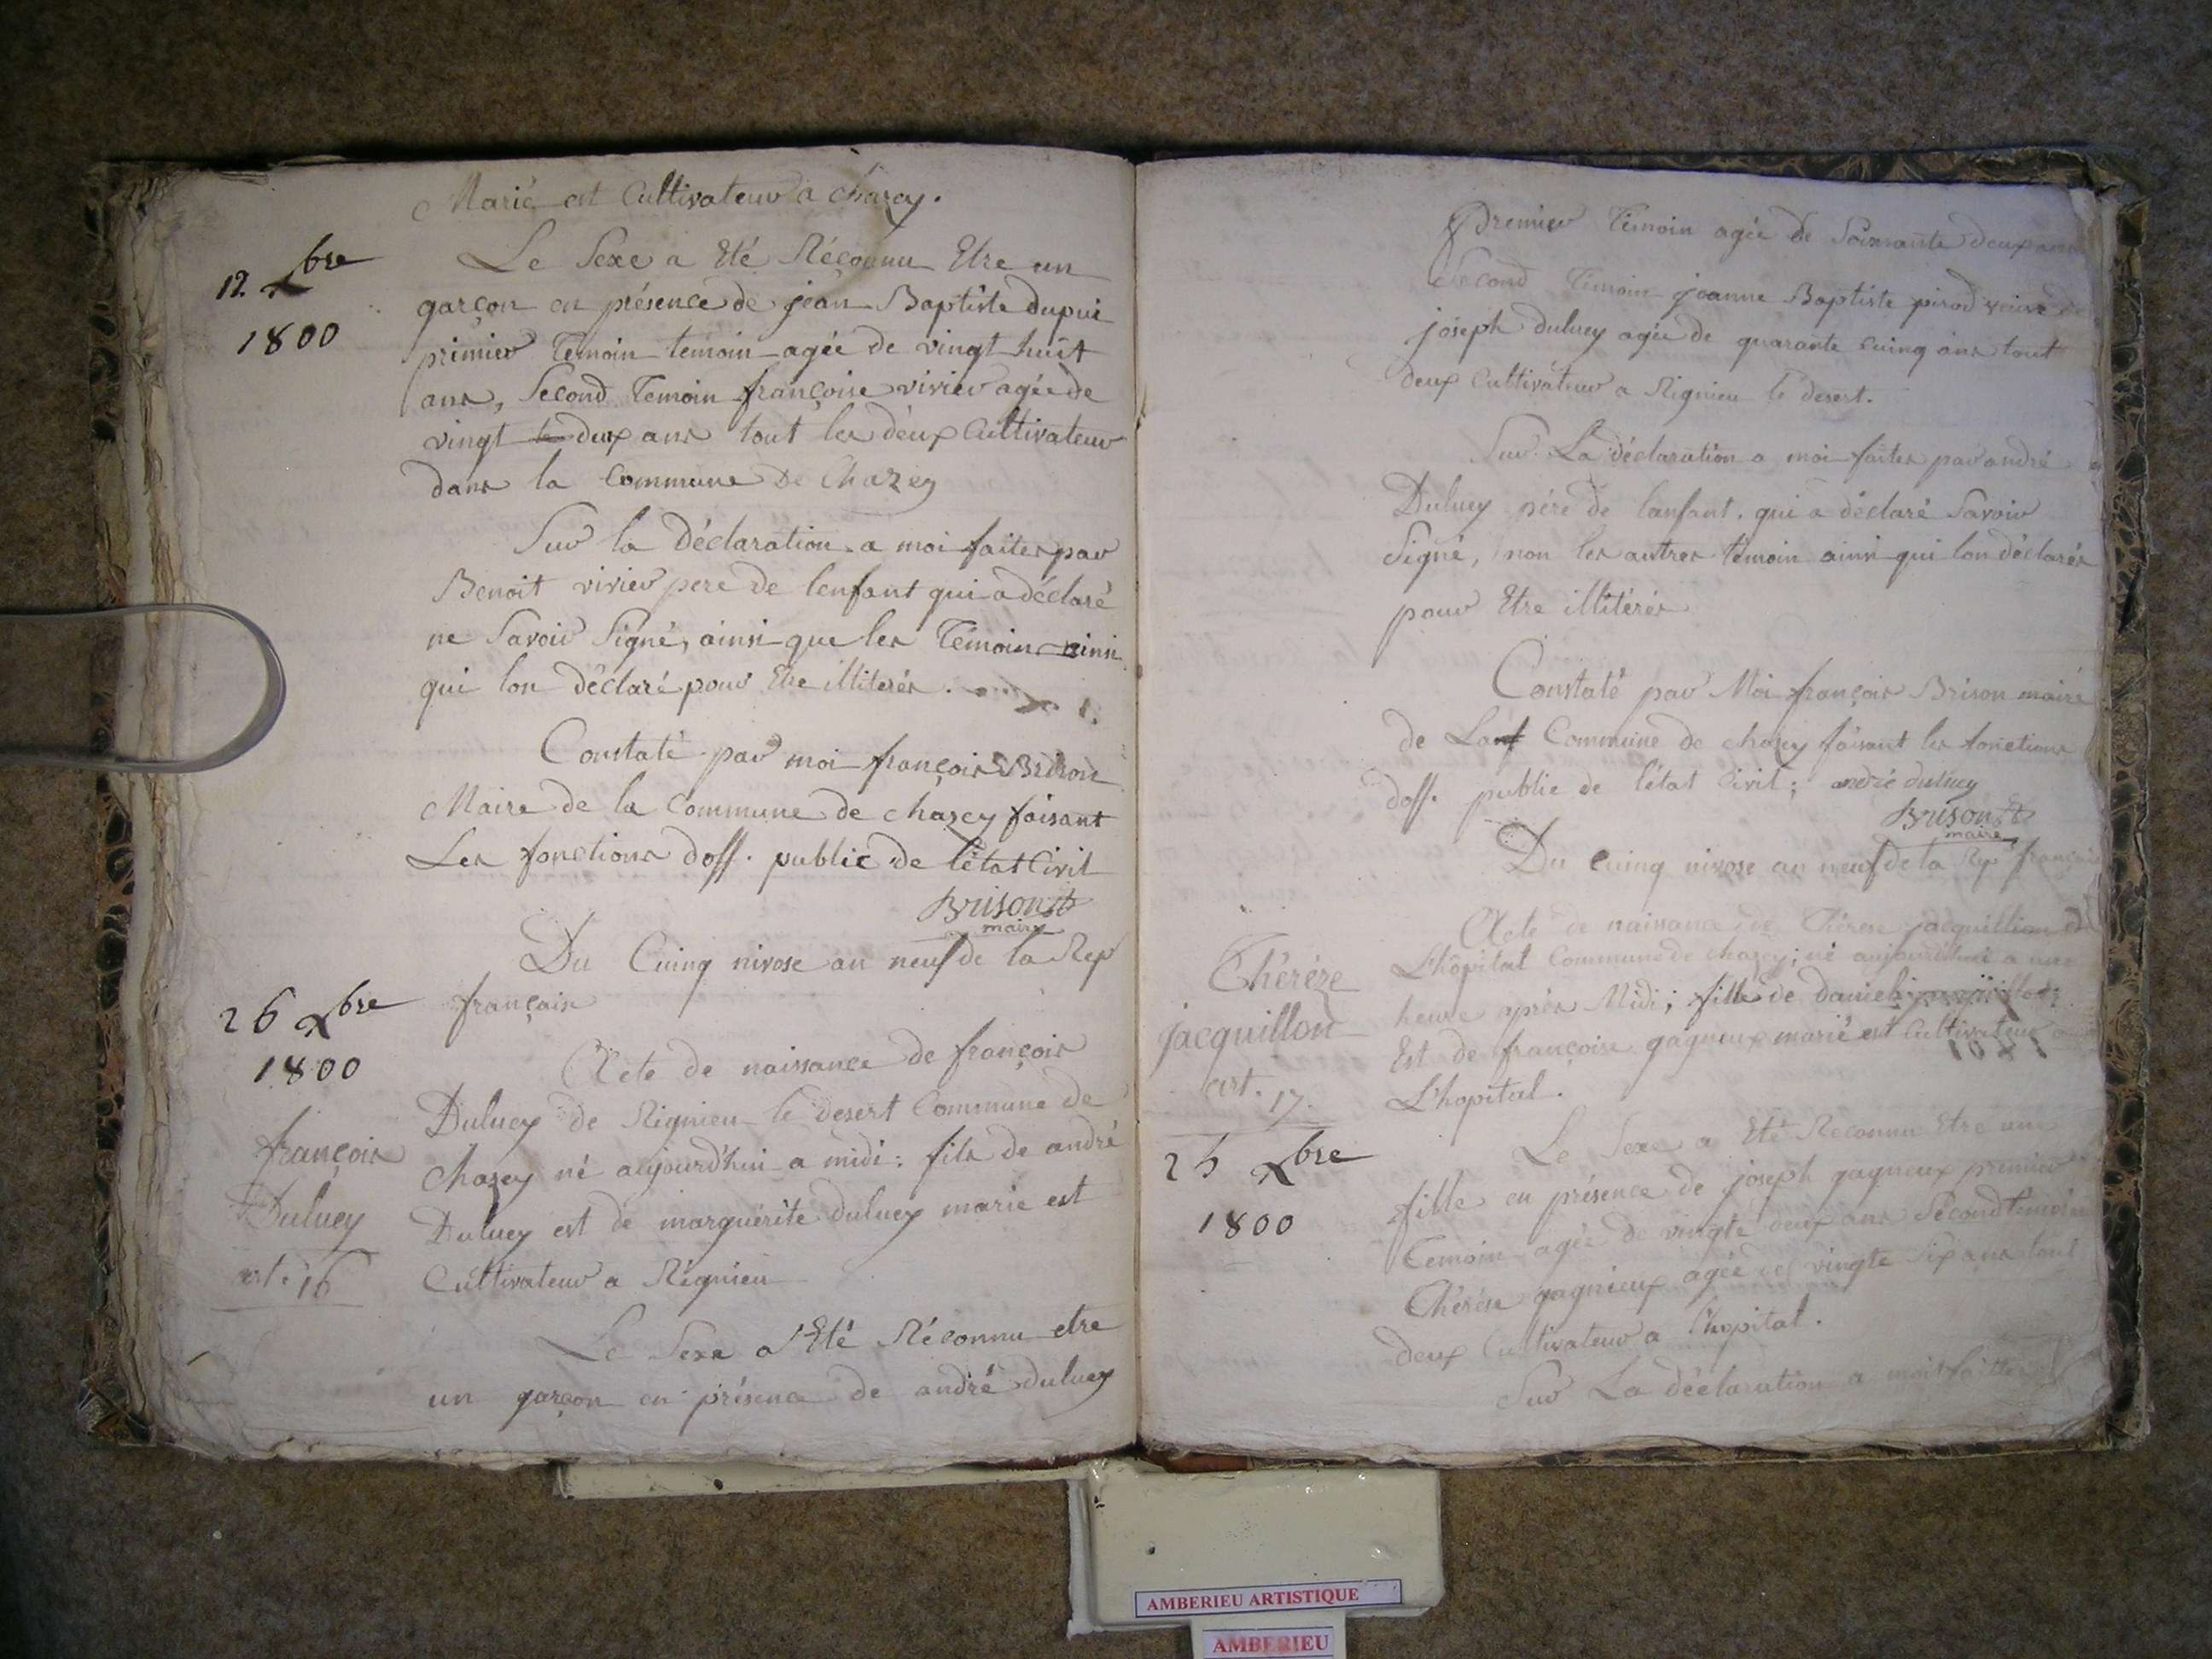 Marié est Cultivateur a chazey.
12 Xbre
1800
Le Sexe a Eté Réconnu Etre un
garçon en présence de jean Baptiste dupui
primier Temoin temoin agée de vingt huit
ans, Second Temoin françoise vivier agée de
vingt le deux ans tout les deux Cultivateur
dans la Commune De Chazey
Sur la Déclaration a moi faites par
Benoit vivier pere de lenfant qui a déclaré
ne Savoir Signé, ainsi que les Témoin ainsi
qui lon Déclaré pour Etre illiterés.
Constaté par moi françois Brison
Maire de la Commune de chazey faisant
Les fonctions doff. public de létat Civil
Brison
maire
Du Cuinq nivose an neuf de la Rep
française
26 Xbre
1800
françois
Duluey
art. 16
Acte de naissance de françois
Duluey de Rignieu le desert Commune de
Chazey né aujourd'hui a midi : fils de andré
Duluey est de marguérite duluey marie est
Cultivateur a Rignieu
Le Sexe a Eté Réconnu etre
un garçon en présence de andré duluey
Premier Témoin agée de Soixante deux ans
Second Témoin joanne Baptiste pirod veuve de
joseph duluey agée de quarante cuinq ans tout
deux Cultivateur a Rignieu le desert.
Sur La déclaration a moi faites par andré
Duluey pére de lanfant. qui a déclaré Savoir
Signé, non les autres témoin ainsi qui lon déclarés
pour Etre illitérés
Constaté par Moi françois Brison maire
de La Commune de chazey faisant les fonctions
doff. public de létat Civil ; andré duluey
Brison
maire
Du cuinq nivose an neuf de la Rep française
Thérèze
jacquillon
art. 17.
26 Xbre
1800
Acte de naissance de Thérese jacquillion de
L'hôpital Commune de chazey ; né aujourd'hui a une
heure après Midi ; fille de daniel
Est de françoise gagneux marié est Cultivateur a
L'hopital.
Le Sexe a Eté Reconnu Etre une
fille en présence de joseph gagneux premier
Temoin agée de vingte deux ans Second temoin
Thérése gagnieux agée de vingte six ans tout
deux Cultivateur a l'hopital.
Sur La déclaration a moi faittes
AMBERIEU ARTISTIQUE
AMBERIEU